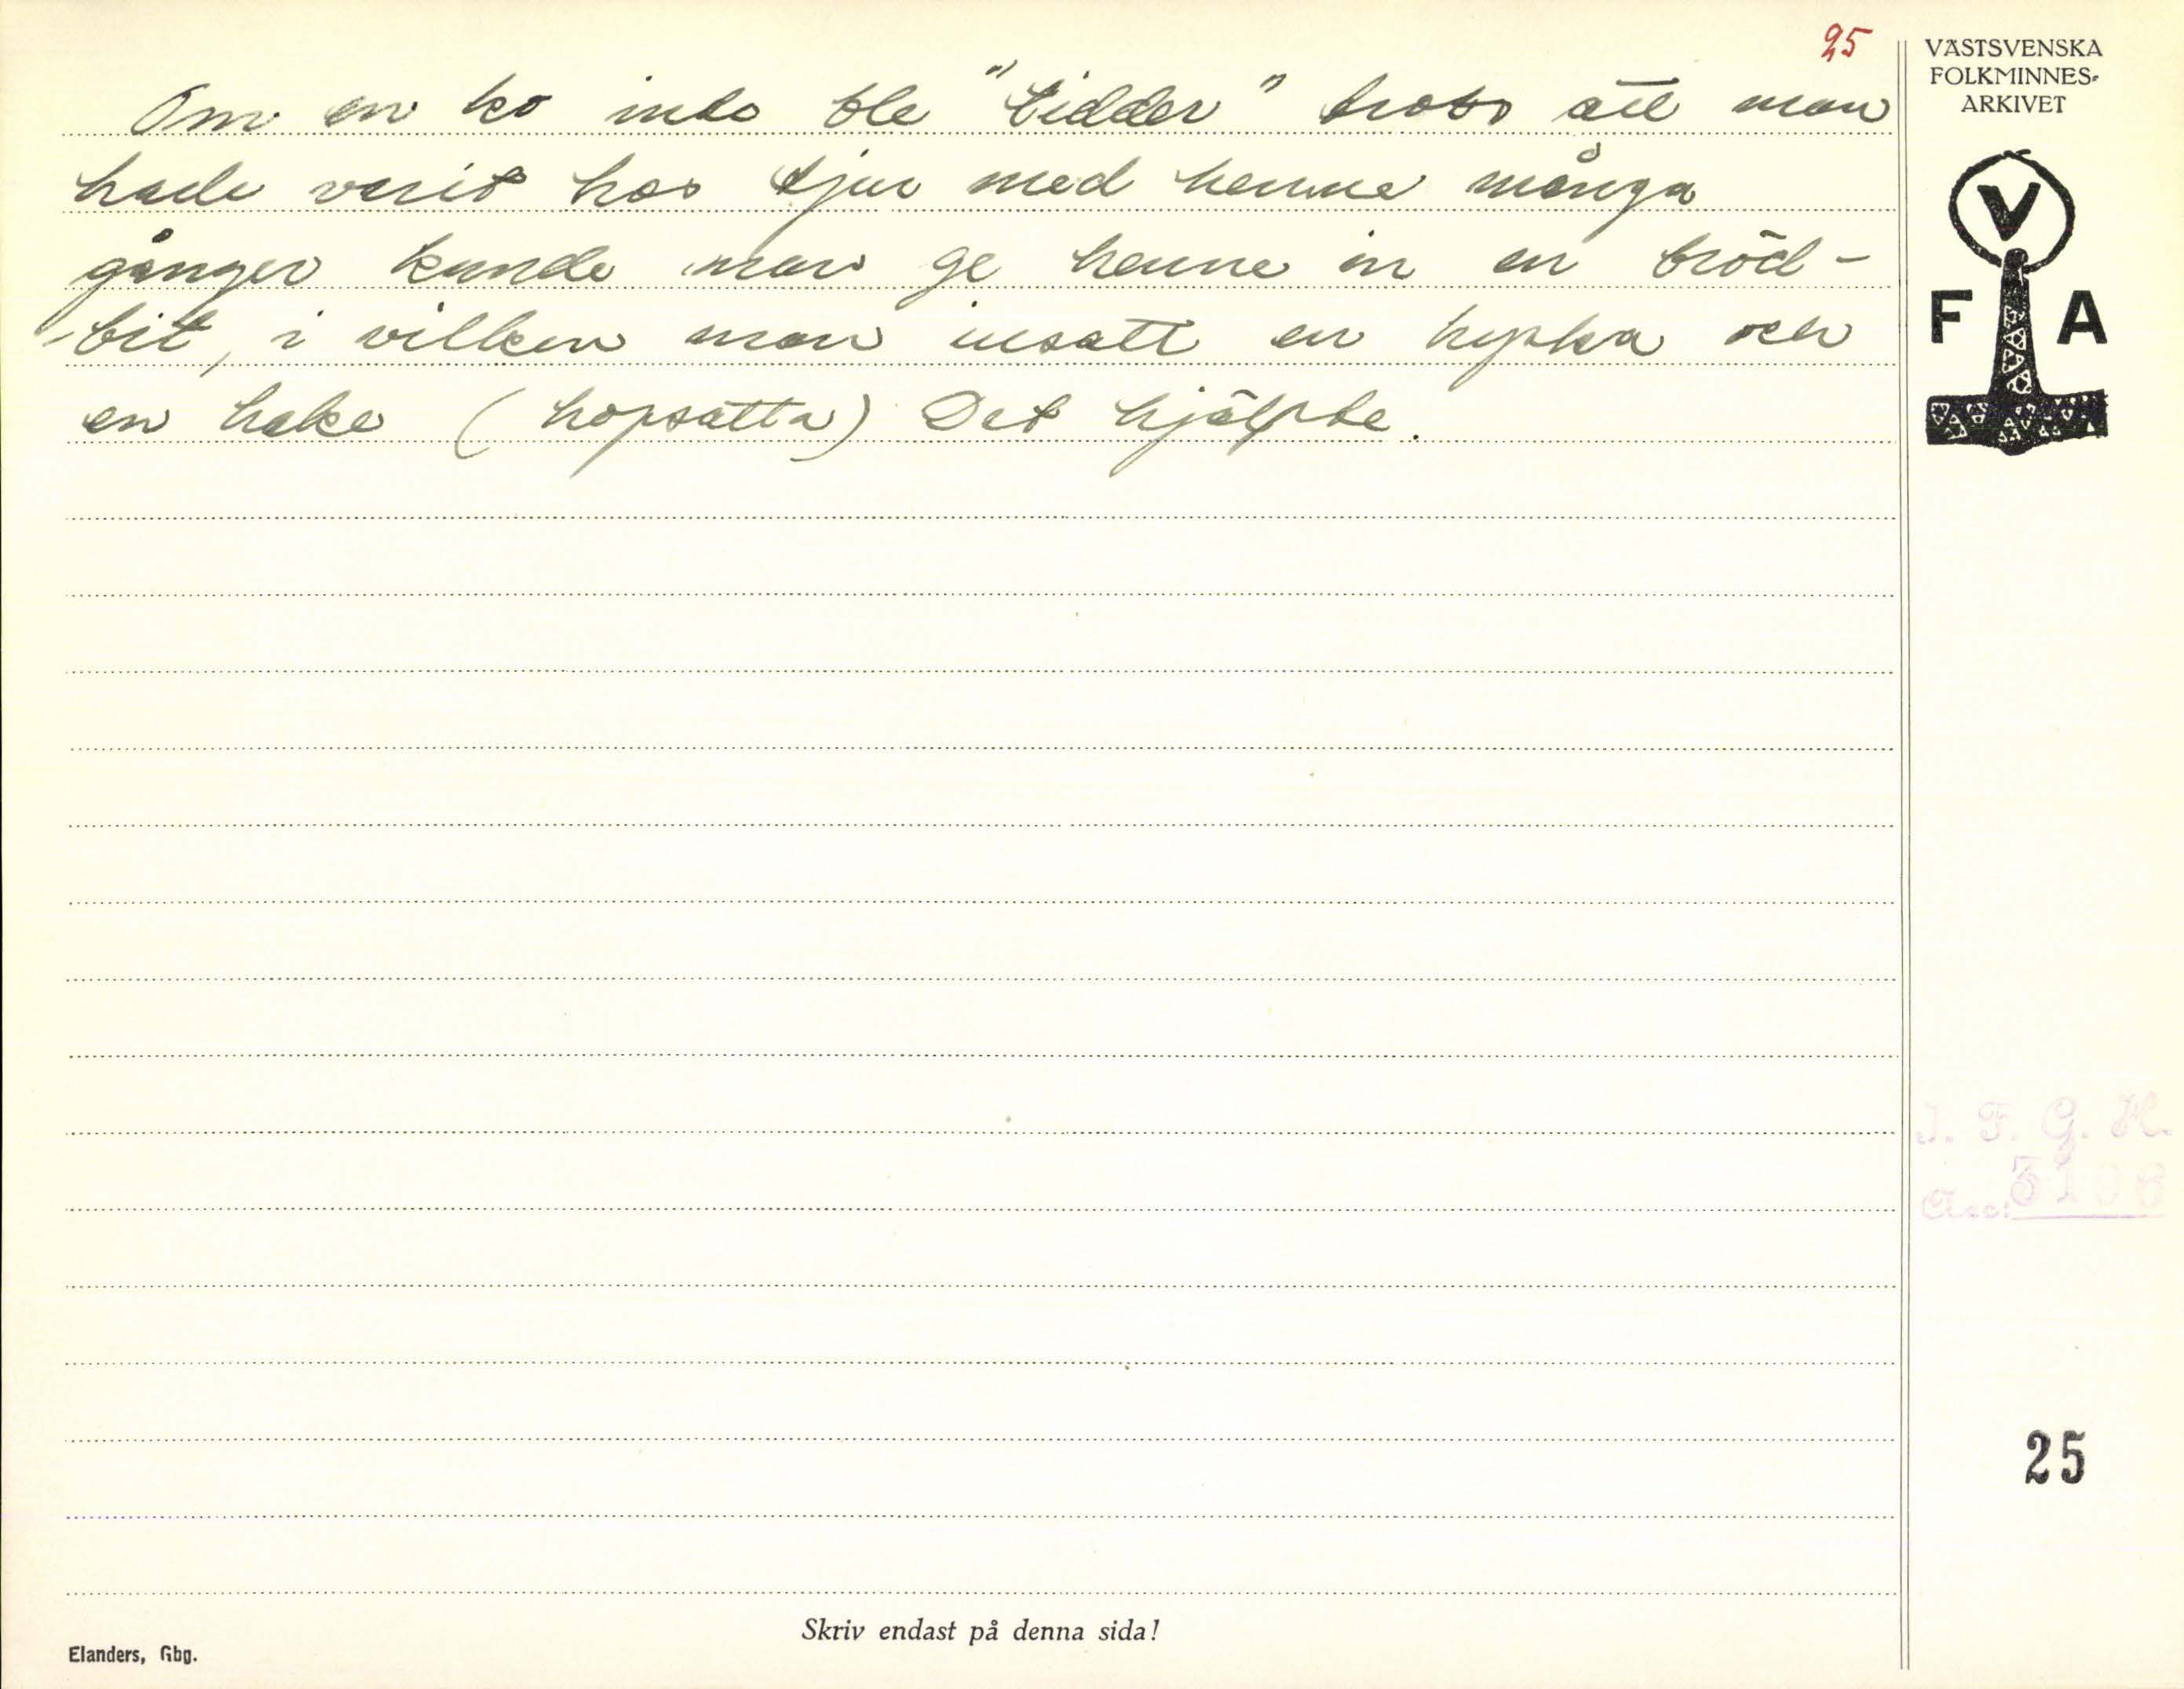 25
Om en ko inte ble "tidder" trots att man
hade varit hos tjur med henne många
gånger kunde man ge henne in en bröd-
bit, i vilken man insatt en hyska och
en hake (hopsatta) Det hjälpte.
VÄSTSVENSKA
FOLKMINNES-
ARKIVET
V
F A
I. F. G. H.
Acc:
25
Skriv endast på denna sida!
Elanders, Gbg.